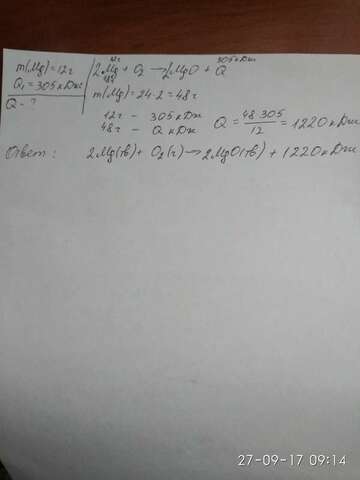 m(Mg)=12г
Q₁=305кДж
Q - ?
12г 305кДж
2Mg + O₂ → 2MgO + Q
48г
m(Mg)=24·2=48г
12г - 305кДж
48г - Q кДж
Q = 48·305/12 = 1220кДж
Ответ: 2Mg(тв)+ O₂(г)→2MgO(тв) + 1220кДж
27-09-17 09:14